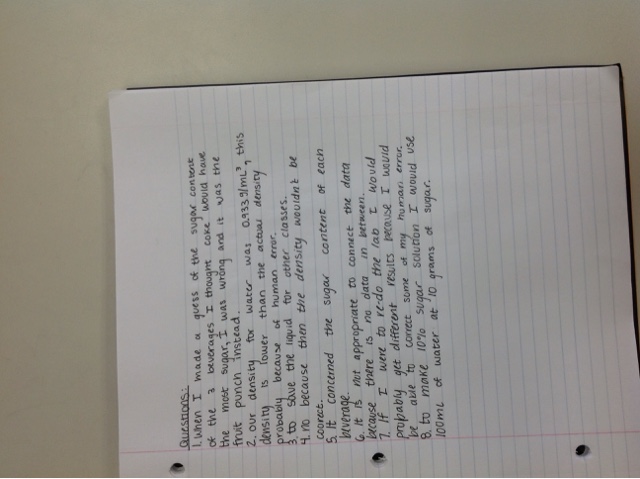 Questions:
1. When I made a guess of the sugar content
of the 3 beverages I thought coke would have
the most sugar, I was wrong and it was the
fruit punch instead.
2. our density for water was 0.933 g/mL³, this
density is lower than the actual density
probably because of human error.
3. to save the liquid for other classes.
4. no because then the density wouldn't be
coorect.
5. It concerned the sugar content of each
beverage.
6. it is not appropriate to connect the data
because there is no data in between.
7. If I were to re-do the lab I would
probably get different results because I would
be able to correct some of my human error.
8. to make 10% sugar solution I would use
100mL of water at 10 grams of sugar.